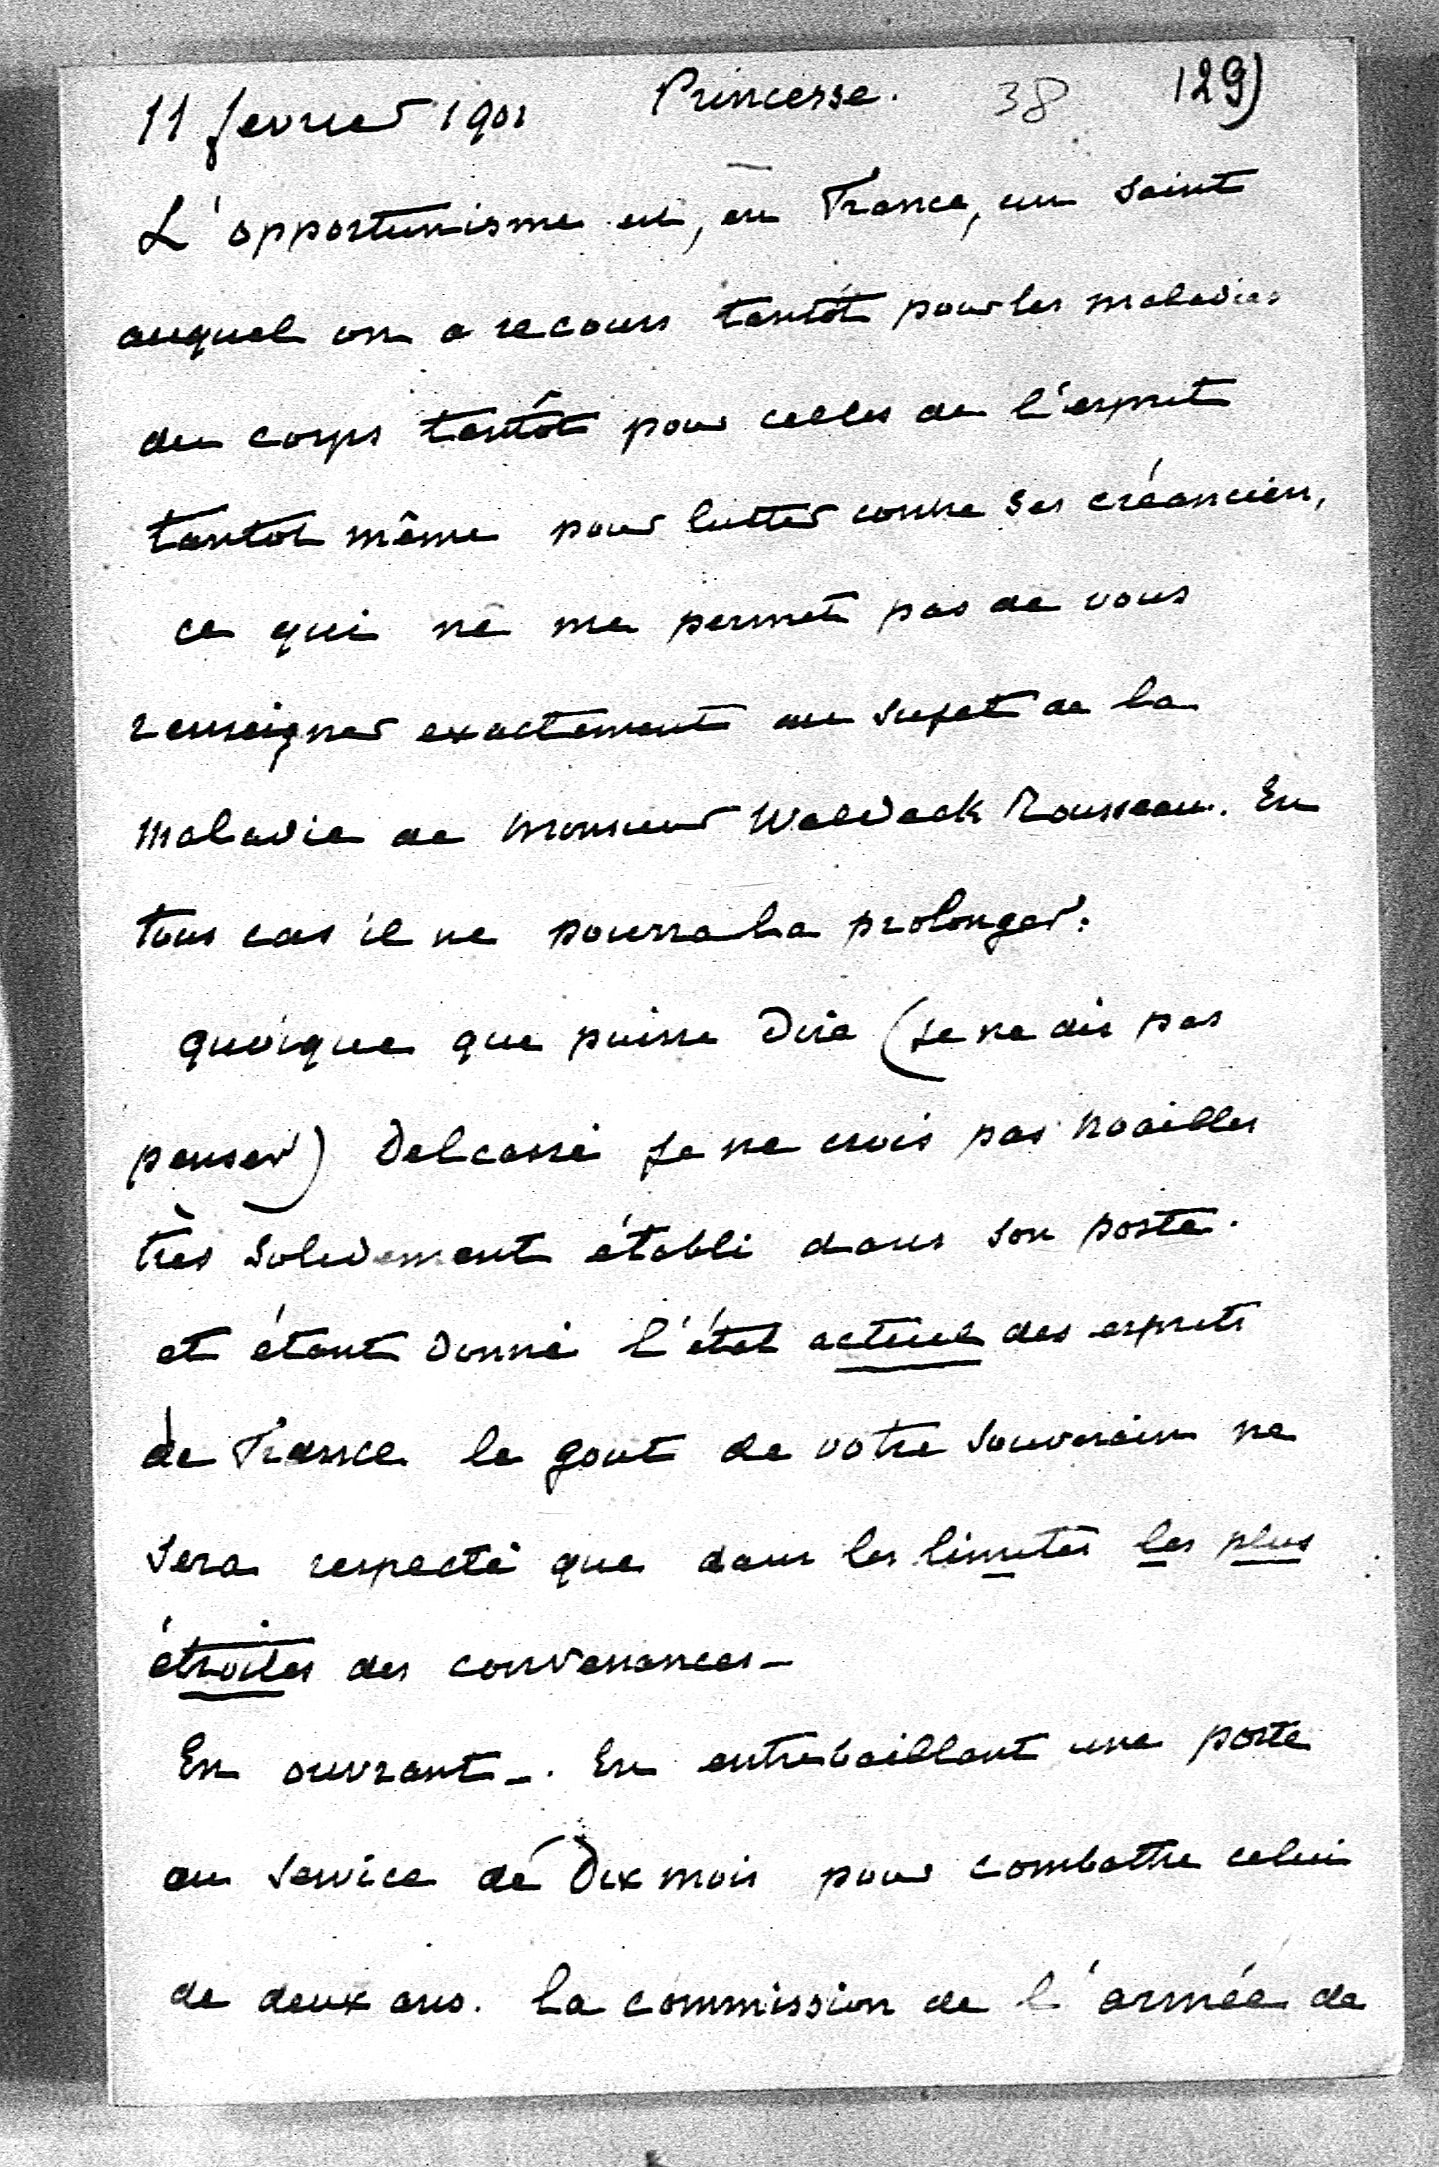 11 fevrier 1901 Princesse. 38 129)
L'opportunisme est, en France, un saint
auquel on a recours tantôt pour les maladies
du corps tantôt pour celles de l'esprit
tantot même pour lutter contre ses créanciers,
ce qui ne me permet pas de vous
renseigner exactement au sujet de la
maladie de Monsieur Waldeck Rousseau. En
tous cas il ne pourra la prolonger.
quoique que puisse dire (je ne dis pas
penser) Delcassé je ne crois pas Noailles
très solidement établi dans son poste.
et étant donné l'état actuel des esprits
de France le gout de votre souverain ne
sera respecté que dans les limites les plus
étroites des convenances -
En ouvrant -. En entrebaillant une porte
au service de Dix mois pour combattre celui
de deux ans. la commission de l'armée de